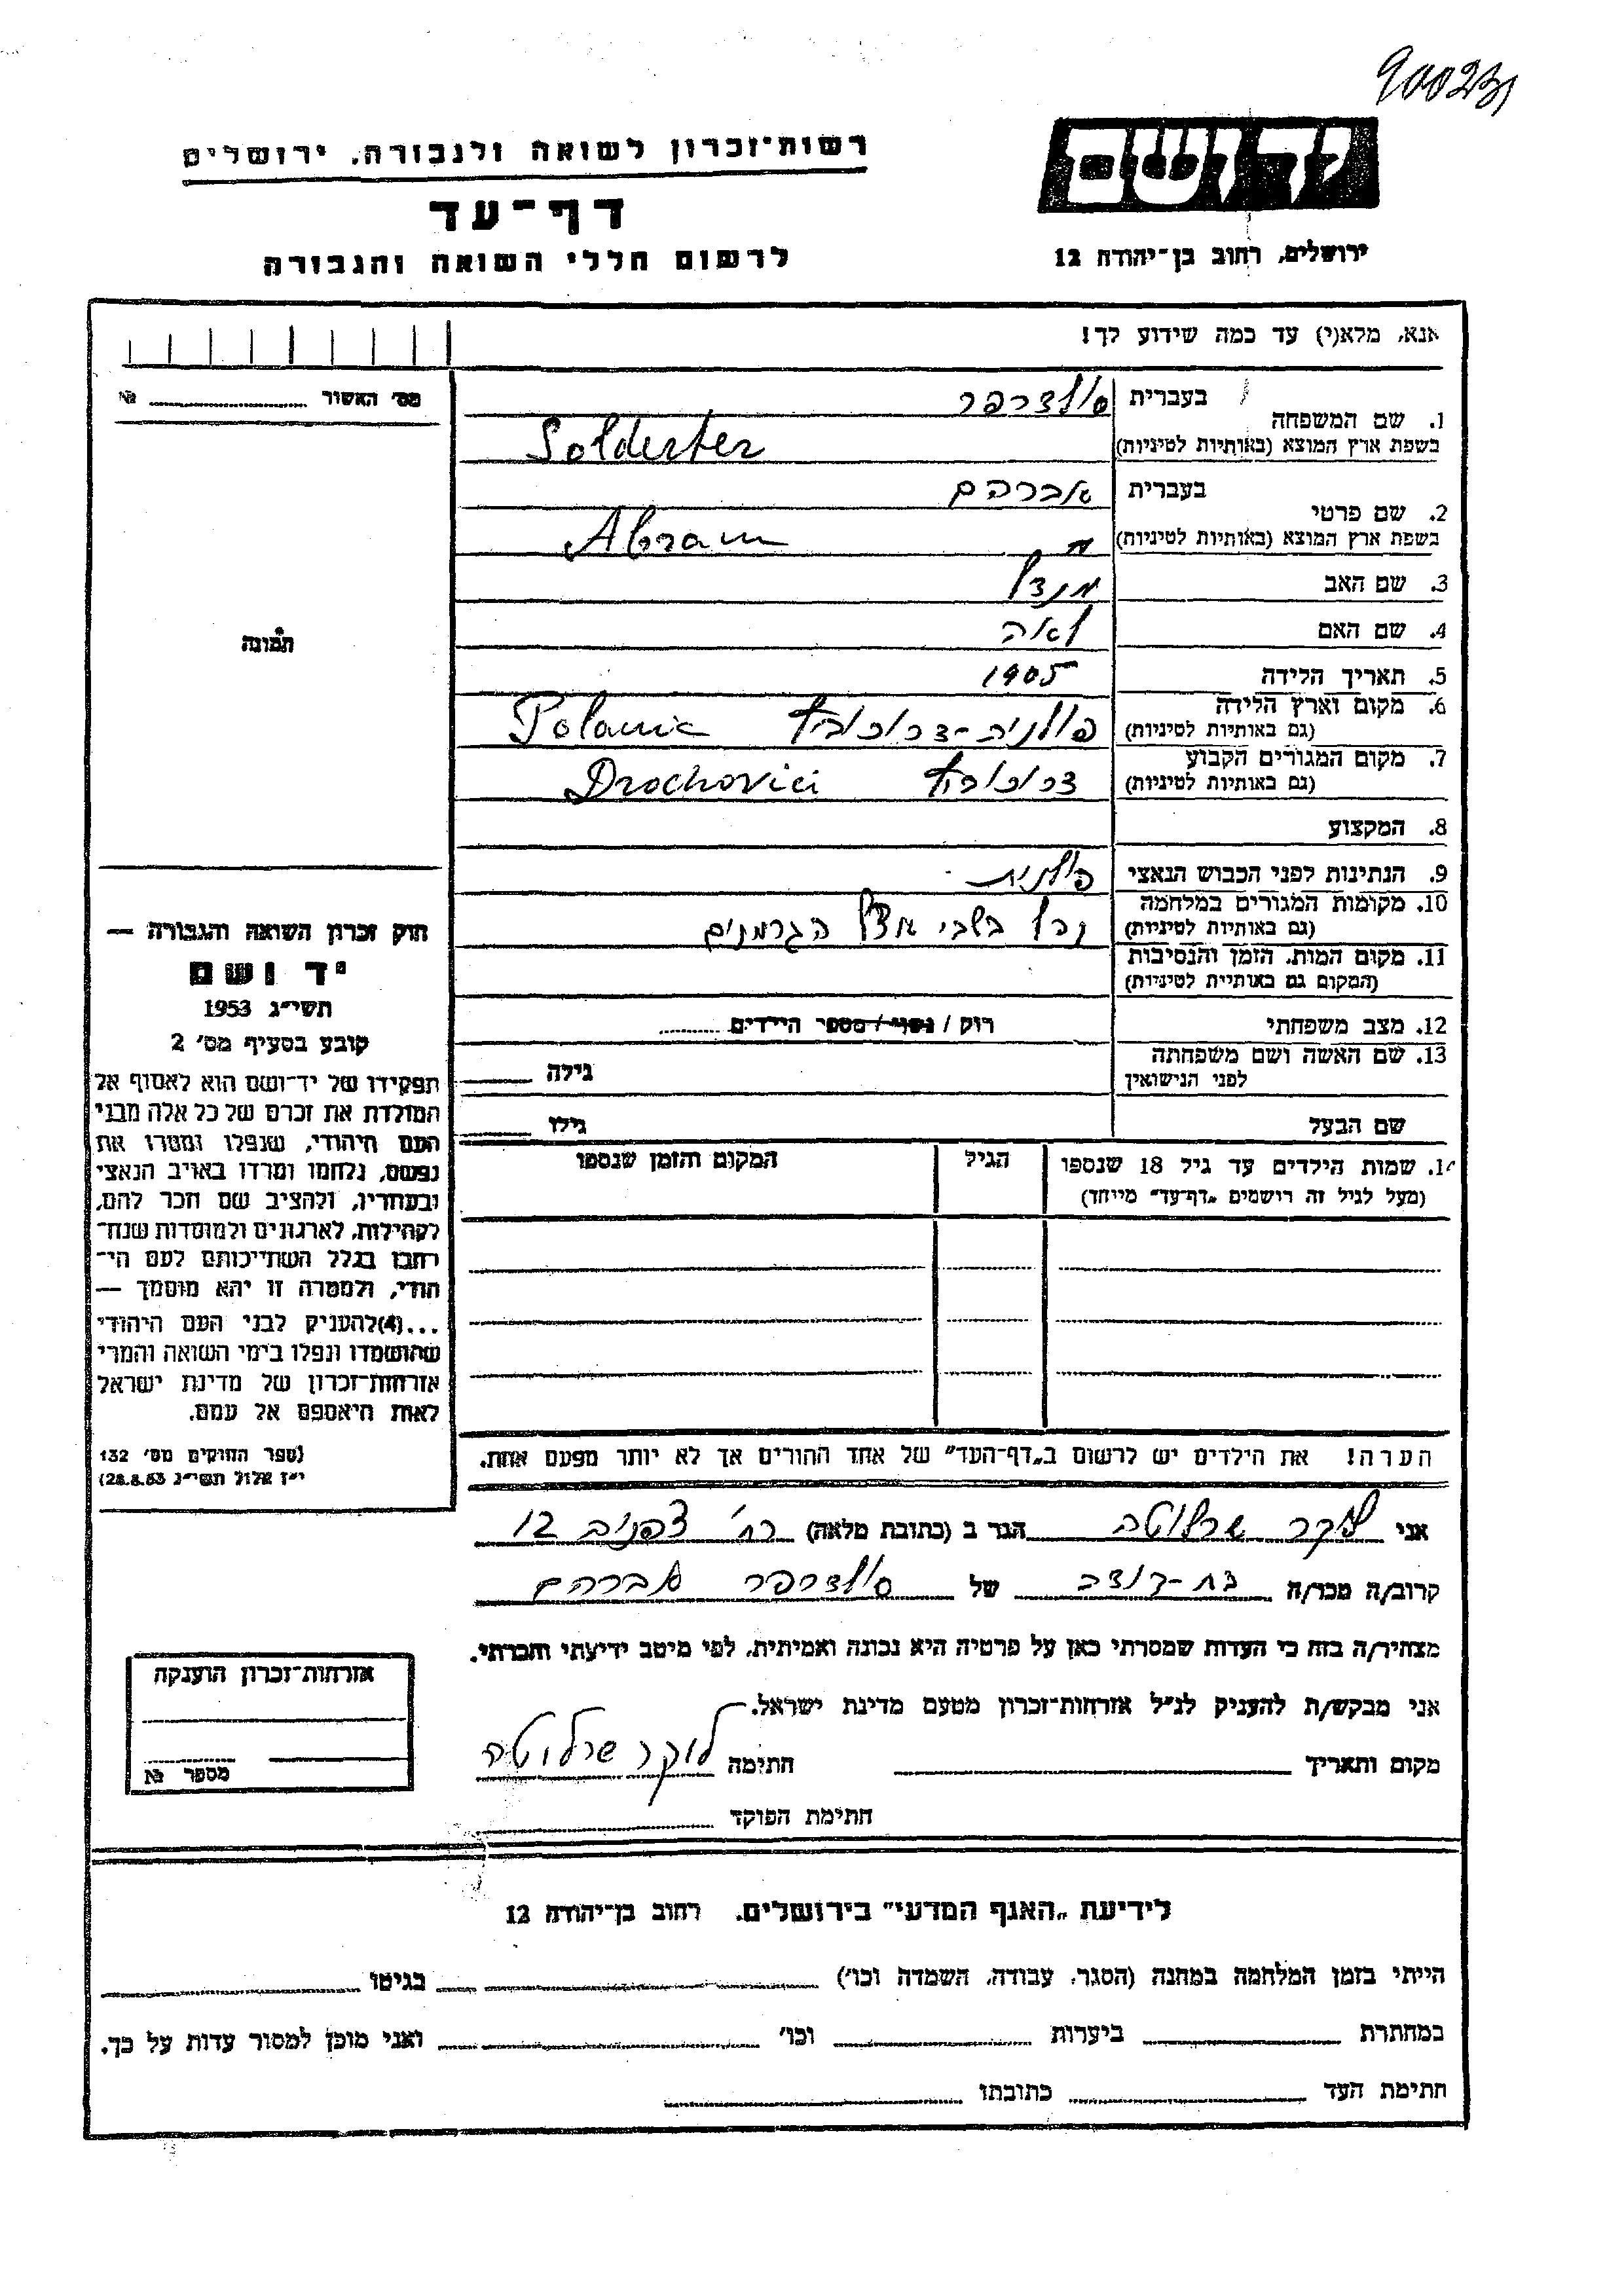 900231
יד ושם
רשות־זכרון לשואה ולגבורה, ירושלים
דף־עד
ירושלים, רחוב בן־יהודה 12
לרשום חללי השואה והגבורה
אנא, מלא(י) עד כמה שידוע לך!
מס' האשור № 
1. שם המשפחה
בעברית סולדרפר
בשפת ארץ המוצא (באותיות לטיניות) Solderfer
2. שם פרטי
בעברית אברהם
בשפת ארץ המוצא (באותיות לטיניות) Abram
3. שם האב מנדל
4. שם האם לאה
תמונה
5. תאריך הלידה 1905
6. מקום וארץ הלידה
(גם באותיות לטיניות) פולניה-דרוכוביץ Polania
7. מקום המגורים הקבוע
(גם באותיות לטיניות) דרוכוביץ Drochovici
8. המקצוע
9. הנתינות לפני הכבוש הנאצי פולנית
10. מקומות המגורים במלחמה
(גם באותיות לטיניות) נפל בשבי אצל הגרמנים
11. מקום המות, הזמן והנסיבות
(המקום גם באותיית לטיניות)
12. מצב משפחתי רוק / נשוי / מספר הילדים
13. שם האשה ושם משפחתה
לפני הנישואין גילה
שם הבעל גילו
14. שמות הילדים עד גיל 18 שנספו הגיל המקום והזמן שנספו
(מעל לגיל זה רושמים „דף־עד" מייחד)
חוק זכרון השואה והגבורה —
יד ושם
תשי"ג 1953
קובע בסעיף מס' 2
תפקידו של יד־ושם הוא לאסוף אל
המולדת את זכרם של כל אלה מבני
העם היהודי, שנפלו ומסרו את
נפשם, נלחמו ומרדו באויב הנאצי
ובעוזריו, ולהציב שם וזכר להם,
לקהילות, לארגונים ולמוסדות שנח־
רחבו בגלל השתייכותם לעם הי־
הודי, ולמטרה זו יהא מוסמך —
...(4) להעניק לבני העם היהודי
שהושמדו ונפלו בימי השואה והמרי
אזרחות־זכרון של מדינת ישראל
לאות היאספם אל עמם.
(ספר החוקים מס' 132
י"ז אלול תשי"ג 28.8.53)
הערה! את הילדים יש לרשום ב„דף־העד" של אחד ההורים אך לא יותר מפעם אחת.
אני לוקר שרלוטה הגר ב (כתובת מלאה) רח' צפניה 12
קרוב/ה מכר/ה בת-דודה של סולדרפר אברהם
מצהיר/ה בזה כי העדות שמסרתי כאן על פרטיה היא נכונה ואמיתית, לפי מיטב ידיעתי והכרתי.
אני מבקש/ת להעניק לנ"ל אזרחות־זכרון מטעם מדינת ישראל.
מקום ותאריך חתימה לוקר שרלוטה
חתימת הפוקד
אזרחות־זכרון הוענקה
מספר №
לידיעת „האגף המדעי" בירושלים, רחוב בן־יהודה 12
הייתי בזמן המלחמה במחנה (הסגר, עבודה, השמדה וכו') בגיטו
במחתרת ביערות וכו' ואני מוכן למסור עדות על כך.
חתימת העד כתובתו